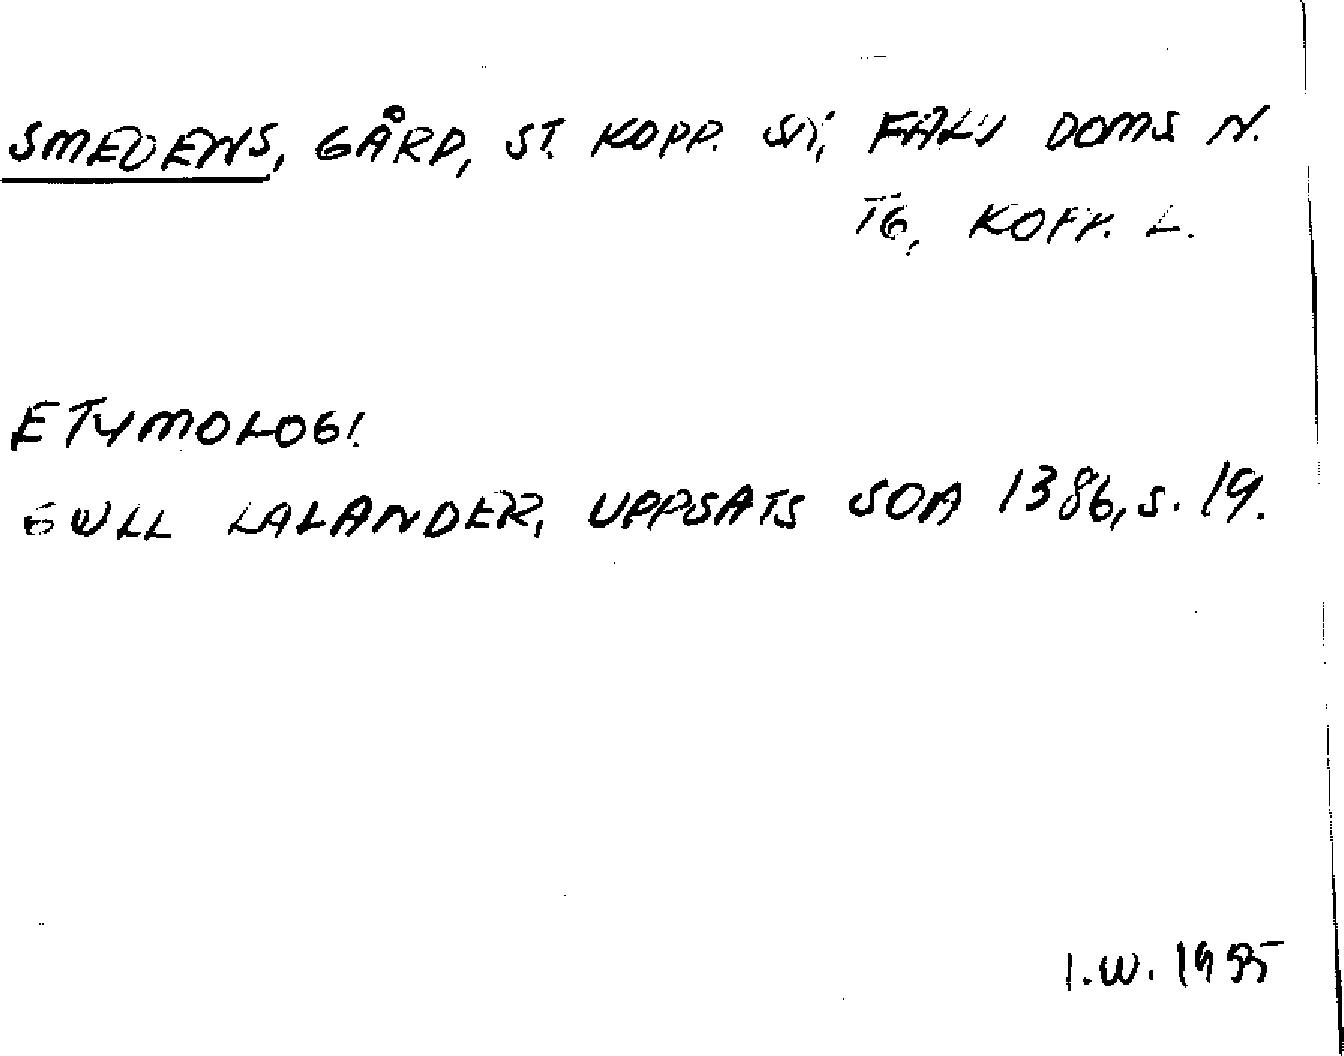 SMEDENS, GÅRD, ST. KOPP. SN, FALU DOMS N.
TG, KOPP. L.
ETYMOLOGI
GULL LALANDER, UPPSATS SOA 1386, S. 19.
I.W. 1985